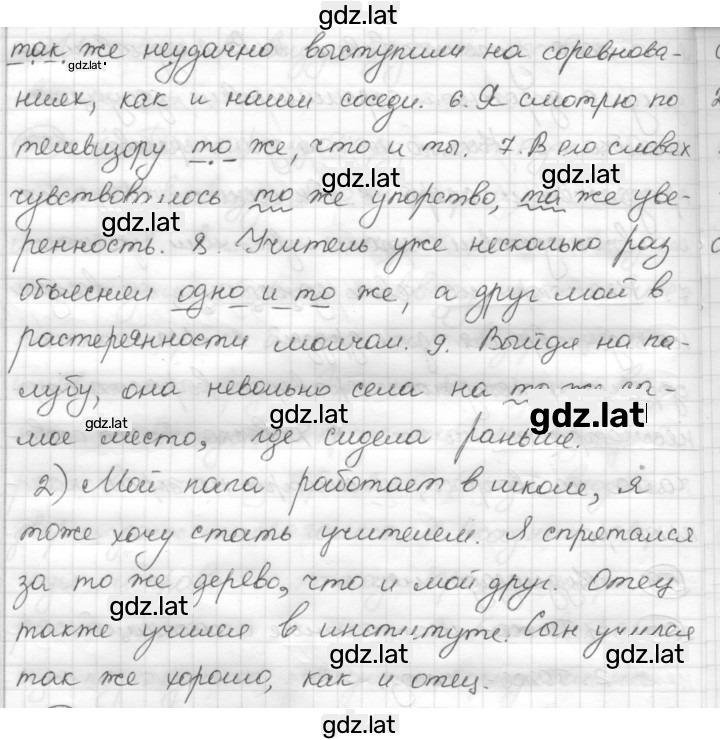 gdz.lat
так же неудачно выступили на соревнова-
gdz.lat
ниях, как и наши соседи. 6. Я смотрю по
телевизору то же, что и ты. 7. В его словах
gdz.lat
gdz.lat
чувствовалось то же упорство, та же уве-
gdz.lat
ренность. 8. Учитель уже несколько раз
объяснял одно и то же, а друг мой в
растерянности молчал. 9. Выйдя на па-
лубу, она невольно села на то же са-
gdz.lat
gdz.lat
gdz.lat
мое место, где сидела раньше.
2) Мой папа работает в школе, я
тоже хочу стать учителем. Я спрятался
за то же дерево, что и мой друг. Отец
gdz.lat
также учился в институте. Сын учился
gdz.lat
gdz.lat
так же хорошо, как и отец.
gdz.lat